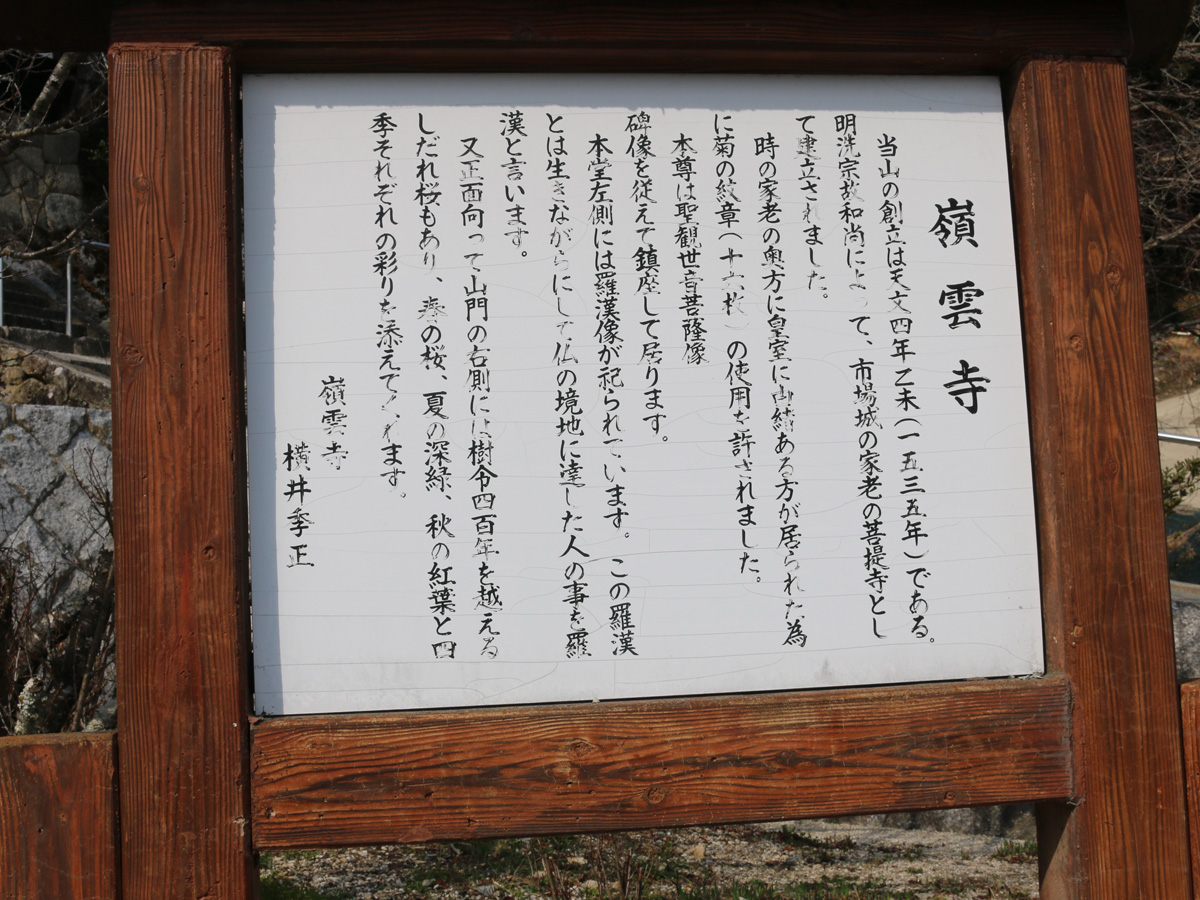 嶺雲寺
当山の創立は天文四年乙未(一五三五年)である。
明洗宗故和尚によって、市場城の家老の菩提寺とし
て建立されました。
時の家老の奥方に皇室に由緒ある方が居られた為
に菊の紋章(十六枚)の使用を許されました。
本尊は聖観世音菩隆像
碑像を従えて鎮座して居ります。
本堂左側には羅漢像が祀られています。この羅漢
とは生きながらにして仏の境地に達した人の事を羅
漢と言います。
又正面向って山門の右側には樹令四百年を越える
しだれ桜もあり、春の桜、夏の深緑、秋の紅葉と四
季それぞれの彩りを添えてくれます。
嶺雲寺
横井季正